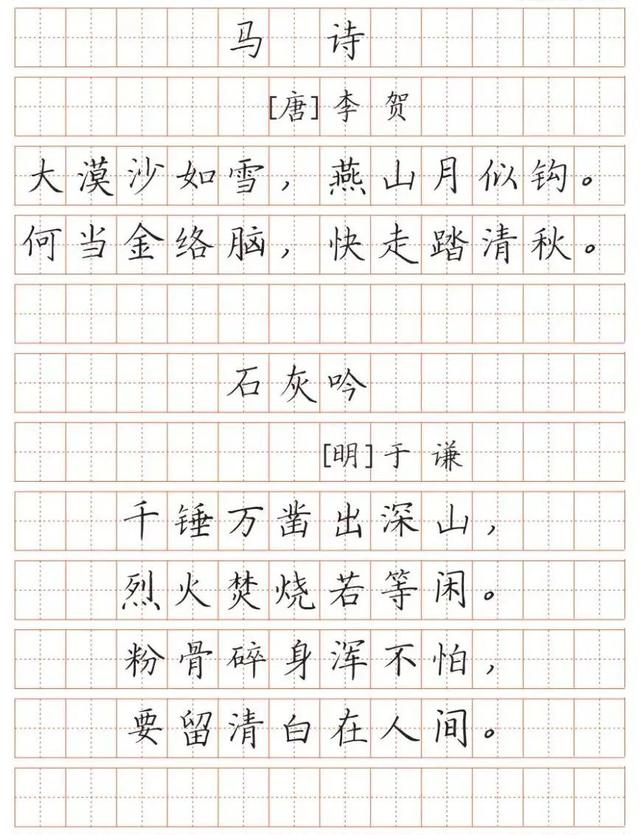 马诗
[唐]李贺
大漠沙如雪，燕山月似钩。
何当金络脑，快走踏清秋。
石灰吟
[明]于谦
千锤万凿出深山，
烈火焚烧若等闲。
粉骨碎身浑不怕，
要留清白在人间。